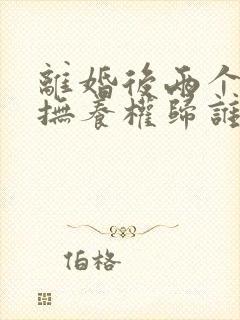 離婚後兩个
撫養權歸誰
伯格